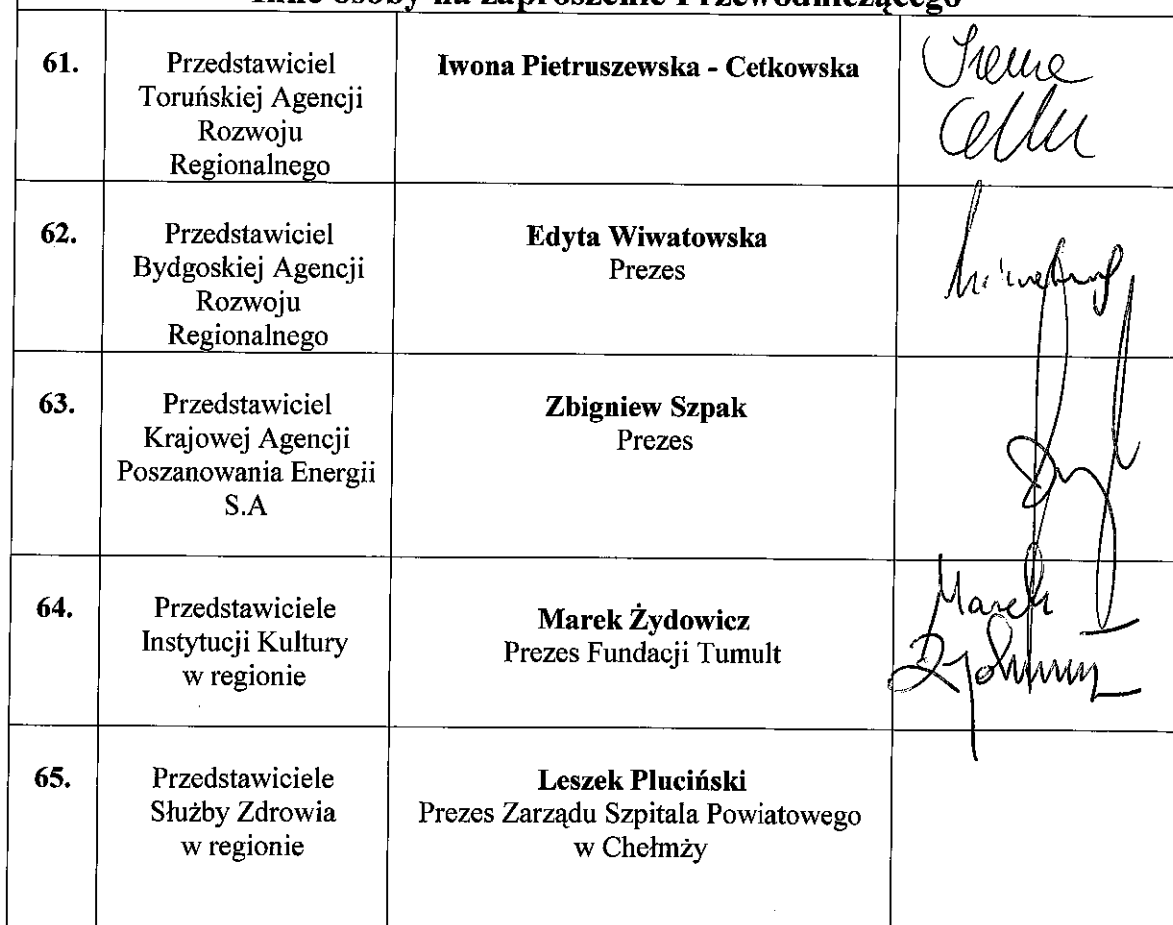 Inne osoby na zaproszenie Przewodniczącego
61.
Przedstawiciel
Toruńskiej Agencji
Rozwoju
Regionalnego
Iwona Pietruszewska - Cetkowska
62.
Przedstawiciel
Bydgoskiej Agencji
Rozwoju
Regionalnego
Edyta Wiwatowska
Prezes
63.
Przedstawiciel
Krajowej Agencji
Poszanowania Energii
S.A
Zbigniew Szpak
Prezes
64.
Przedstawiciele
Instytucji Kultury
w regionie
Marek Żydowicz
Prezes Fundacji Tumult
Marek
65.
Przedstawiciele
Służby Zdrowia
w regionie
Leszek Pluciński
Prezes Zarządu Szpitala Powiatowego
w Chełmży